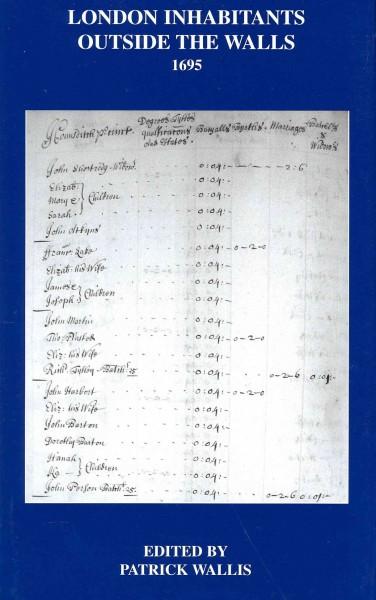 LONDON INHABITANTS
OUTSIDE THE WALLS
1695
Houndsditch Precinct. Degrees Tytles
qualificacons Buryalls Byrths Marriages Batchlrs
and Estates & Widrs
John Widowr. 0:04:- 2:6
Elizab: 0:04:-
Mary & Children 0:04:-
Sarah 0:04:-
John Atkyns 0:04:-
0:04:- 0-2-0
Elizab: his Wife 0:04:-
James & 0:04:-
Joseph Children 0:04:-
John Martin 0:04:-
Tho 0:04:- 0-2-0
Eliz: his Wife 0:04:-
Richd. Batchlr. 25 0:04:- 0-2-6 0:01:-
John Harbert 0:04:- 0-2-0
Eliz: his Wife 0:04:-
John Barton 0:04:-
Dorothy Barton 0:04:-
Hanah 0:04:-
Children 0:04:-
John Batchlr. 25. 0:04:- 0-2-6 0:01:-
EDITED BY
PATRICK WALLIS